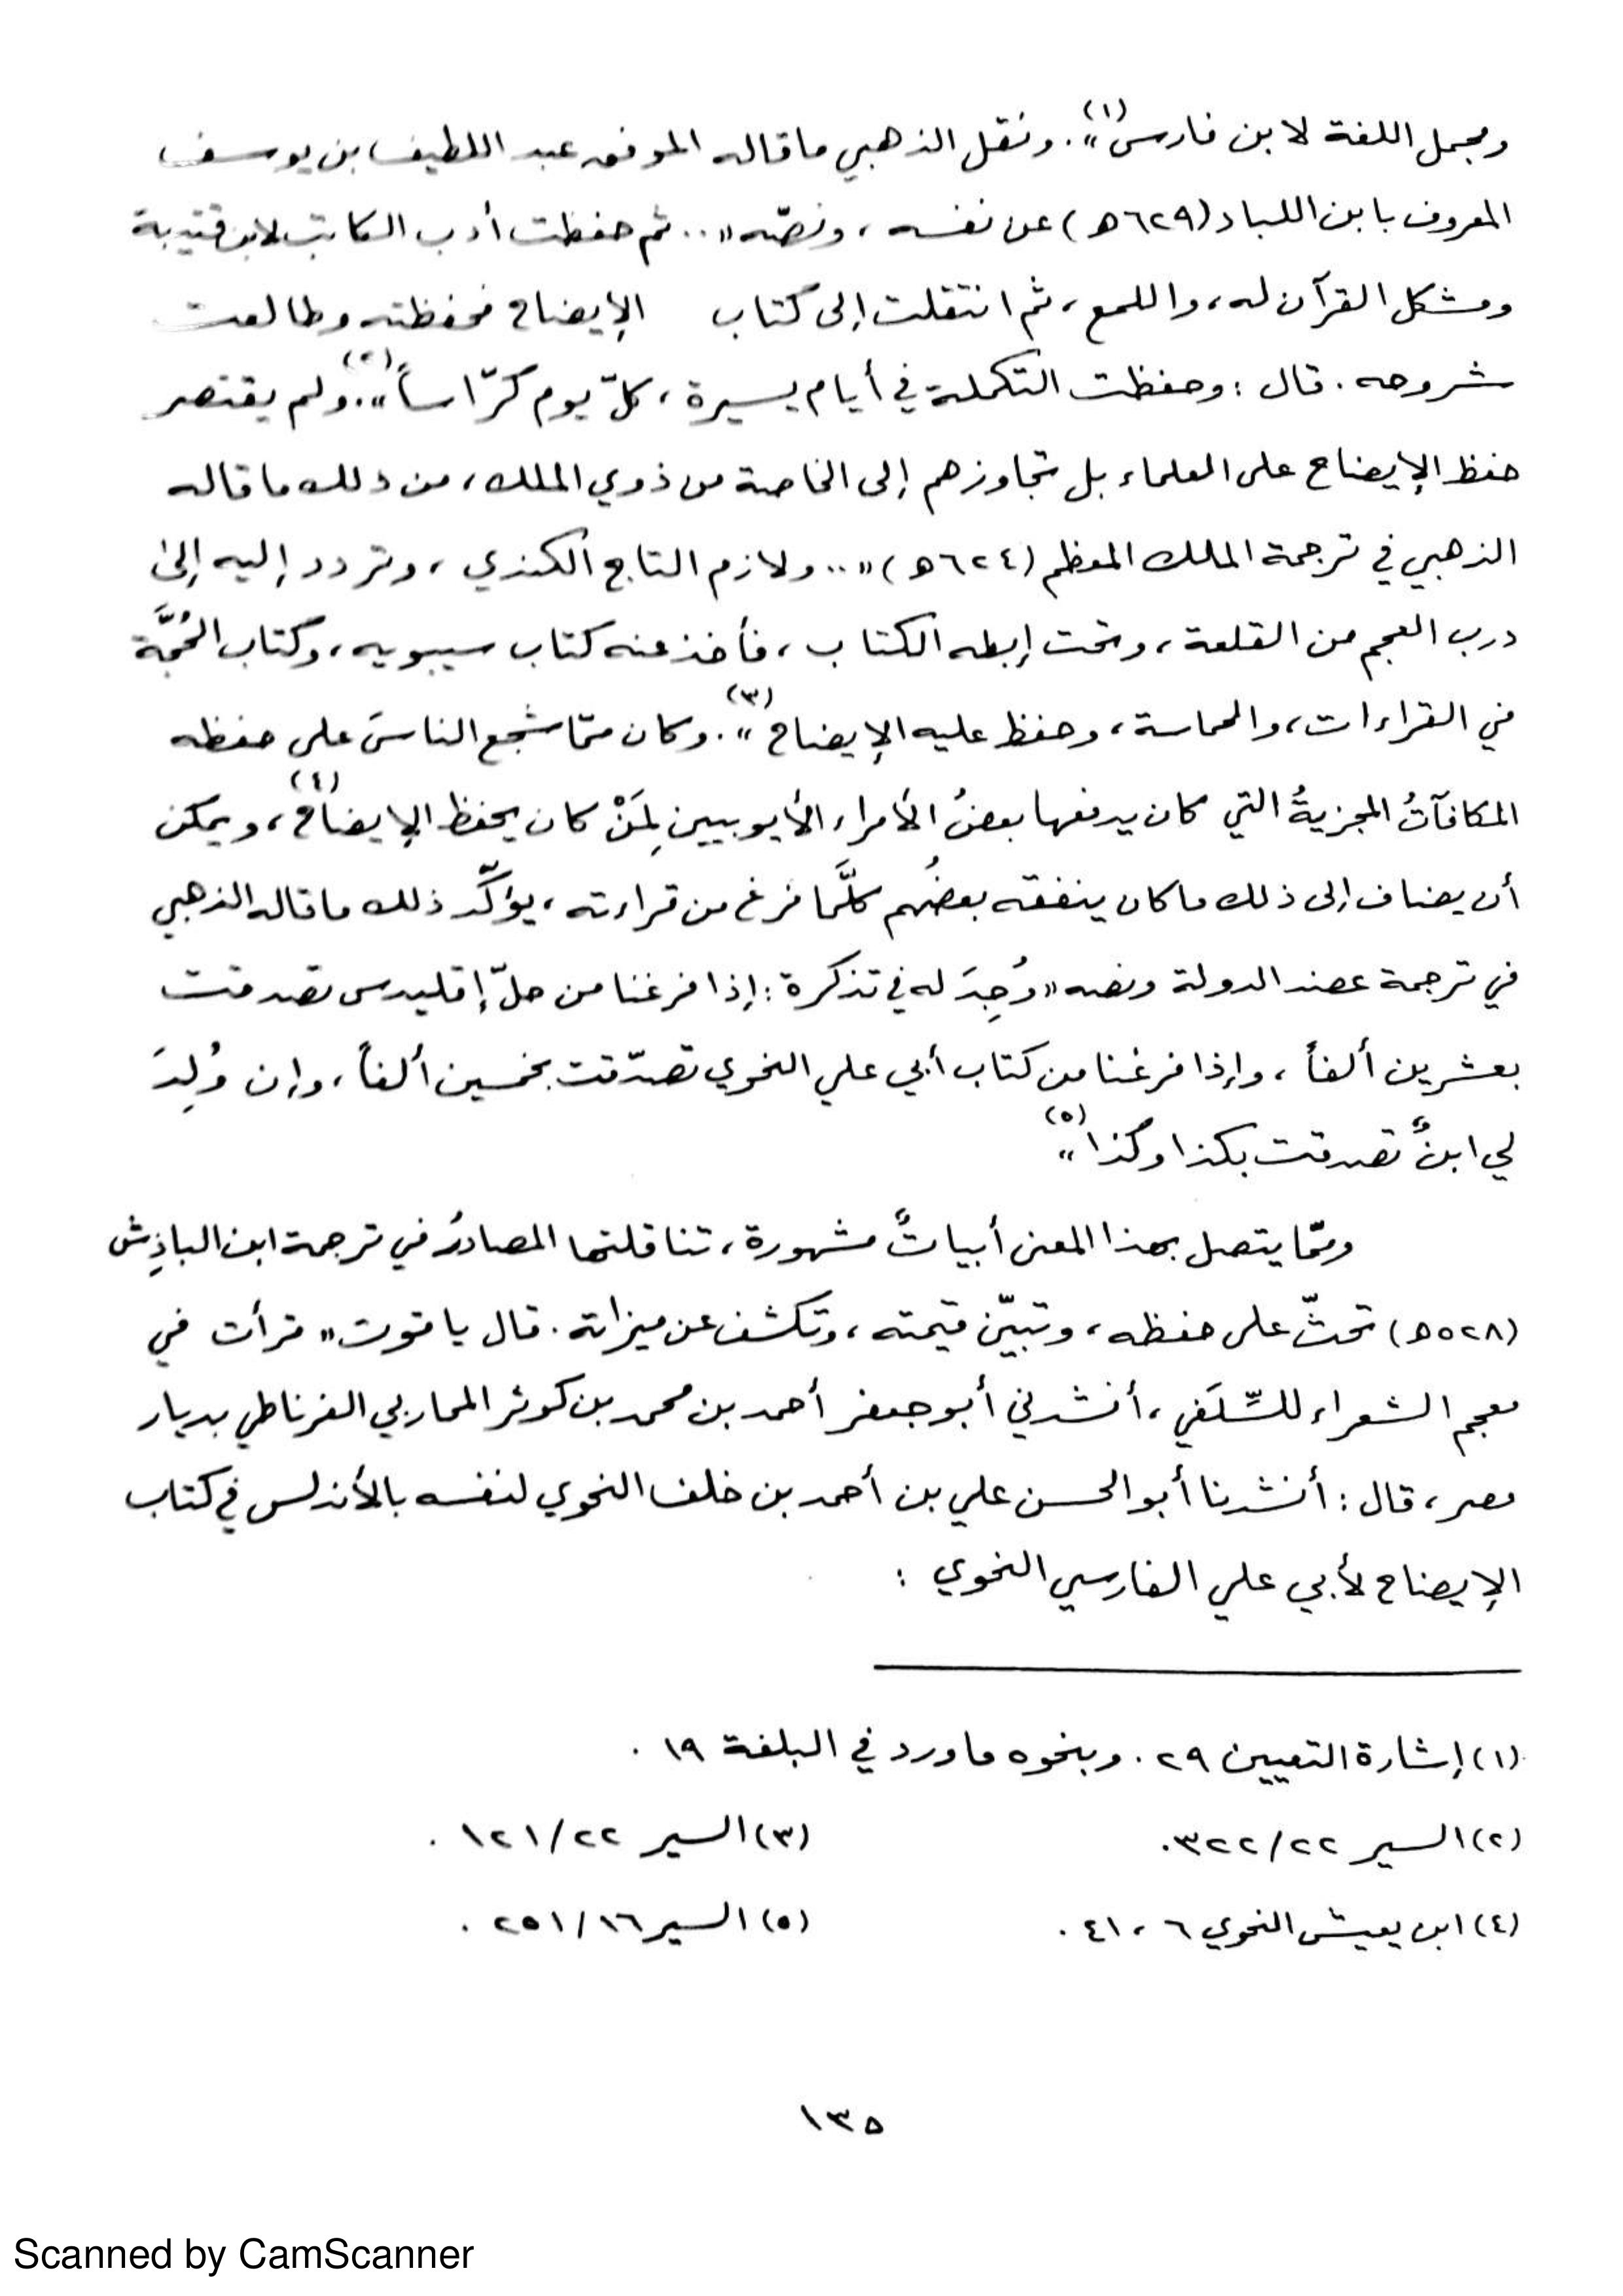 ومجمل اللغة لابن فارس(١)». ونقل الذهبي ما قاله الموفق عبد اللطيف بن يوسف
المعروف بابن اللباد (٦٢٩ھ) عن نفسه، ونصّه «.. ثم حفظت أدب الكاتب لابن قتيبة
ومشكل القرآن له، واللمع، ثم انتقلت إلى كتاب الإيضاح فحفظته وطالعت
شروحه. قال: وحفظت التكملة في أيام يسيرة، كلّ يوم كرّاساً(٢)». ولم يقتصر
حفظ الإيضاح على العلماء بل تجاوزهم إلى الخاصة من ذوي الملك، من ذلك ما قاله
الذهبي في ترجمة الملك المعظم (٦٢٤ھ) «.. ولازم التاج الكندي، وتردد إليه إلى
درب العجم من القلعة، وتحت إبطه الكتاب، فأخذ عنه كتاب سيبويه، وكتاب الحُجَّة
في القراءات، والحماسة، وحفظ عليه الإيضاح(٣)». وكان ممّا شجع الناسَ على حفظه
المكافآتُ المجزيةُ التي كان يدفعها بعضُ الأمراء الأيوبيين لِمَنْ كان يحفظ الإيضاح(٤)، ويمكن
أن يضاف إلى ذلك ما كان ينفقه بعضُهم كلَّما فرغ من قراءته، يؤكّد ذلك ما قاله الذهبي
في ترجمة عضد الدولة ونصه «وُجِدَ له في تذكرة: إذا فرغنا من حلّ إقليدس تصدقت
بعشرين ألفاً، وإذا فرغنا من كتاب أبي علي النحوي تصدّقت بخمسين ألفاً، وإن وُلِدَ
لي ابنٌ تصدقت بكذا وكذا(٥)»
وممّا يتصل بهذا المعنى أبياتٌ مشهورة، تناقلتها المصادرُ في ترجمة ابن الباذِش
(٥٢٨ھ) تحثّ على حفظه، وتبيّن قيمته، وتكشف عن ميزاته. قال ياقوت «قرأت في
معجم الشعراء للسِّلَفي، أنشدني أبو جعفر أحمد بن محمد بن كوثر المحاربي الغرناطي بديار
مصر، قال: أنشدنا أبو الحسن علي بن أحمد بن خلف النحوي لنفسه بالأندلس في كتاب
الإيضاح لأبي علي الفارسي النحوي:
(١) إشارة التعيين ٢٩. وبنحوه ما ورد في البلغة ١٩.
(٢) السير ٣٢٢/٢٢. (٣) السير ١٢١/٢٢.
(٤) ابن يعيش النحوي ٦، ٤١. (٥) السير ٢٥١/١٦.
١٣٥
Scanned by CamScanner